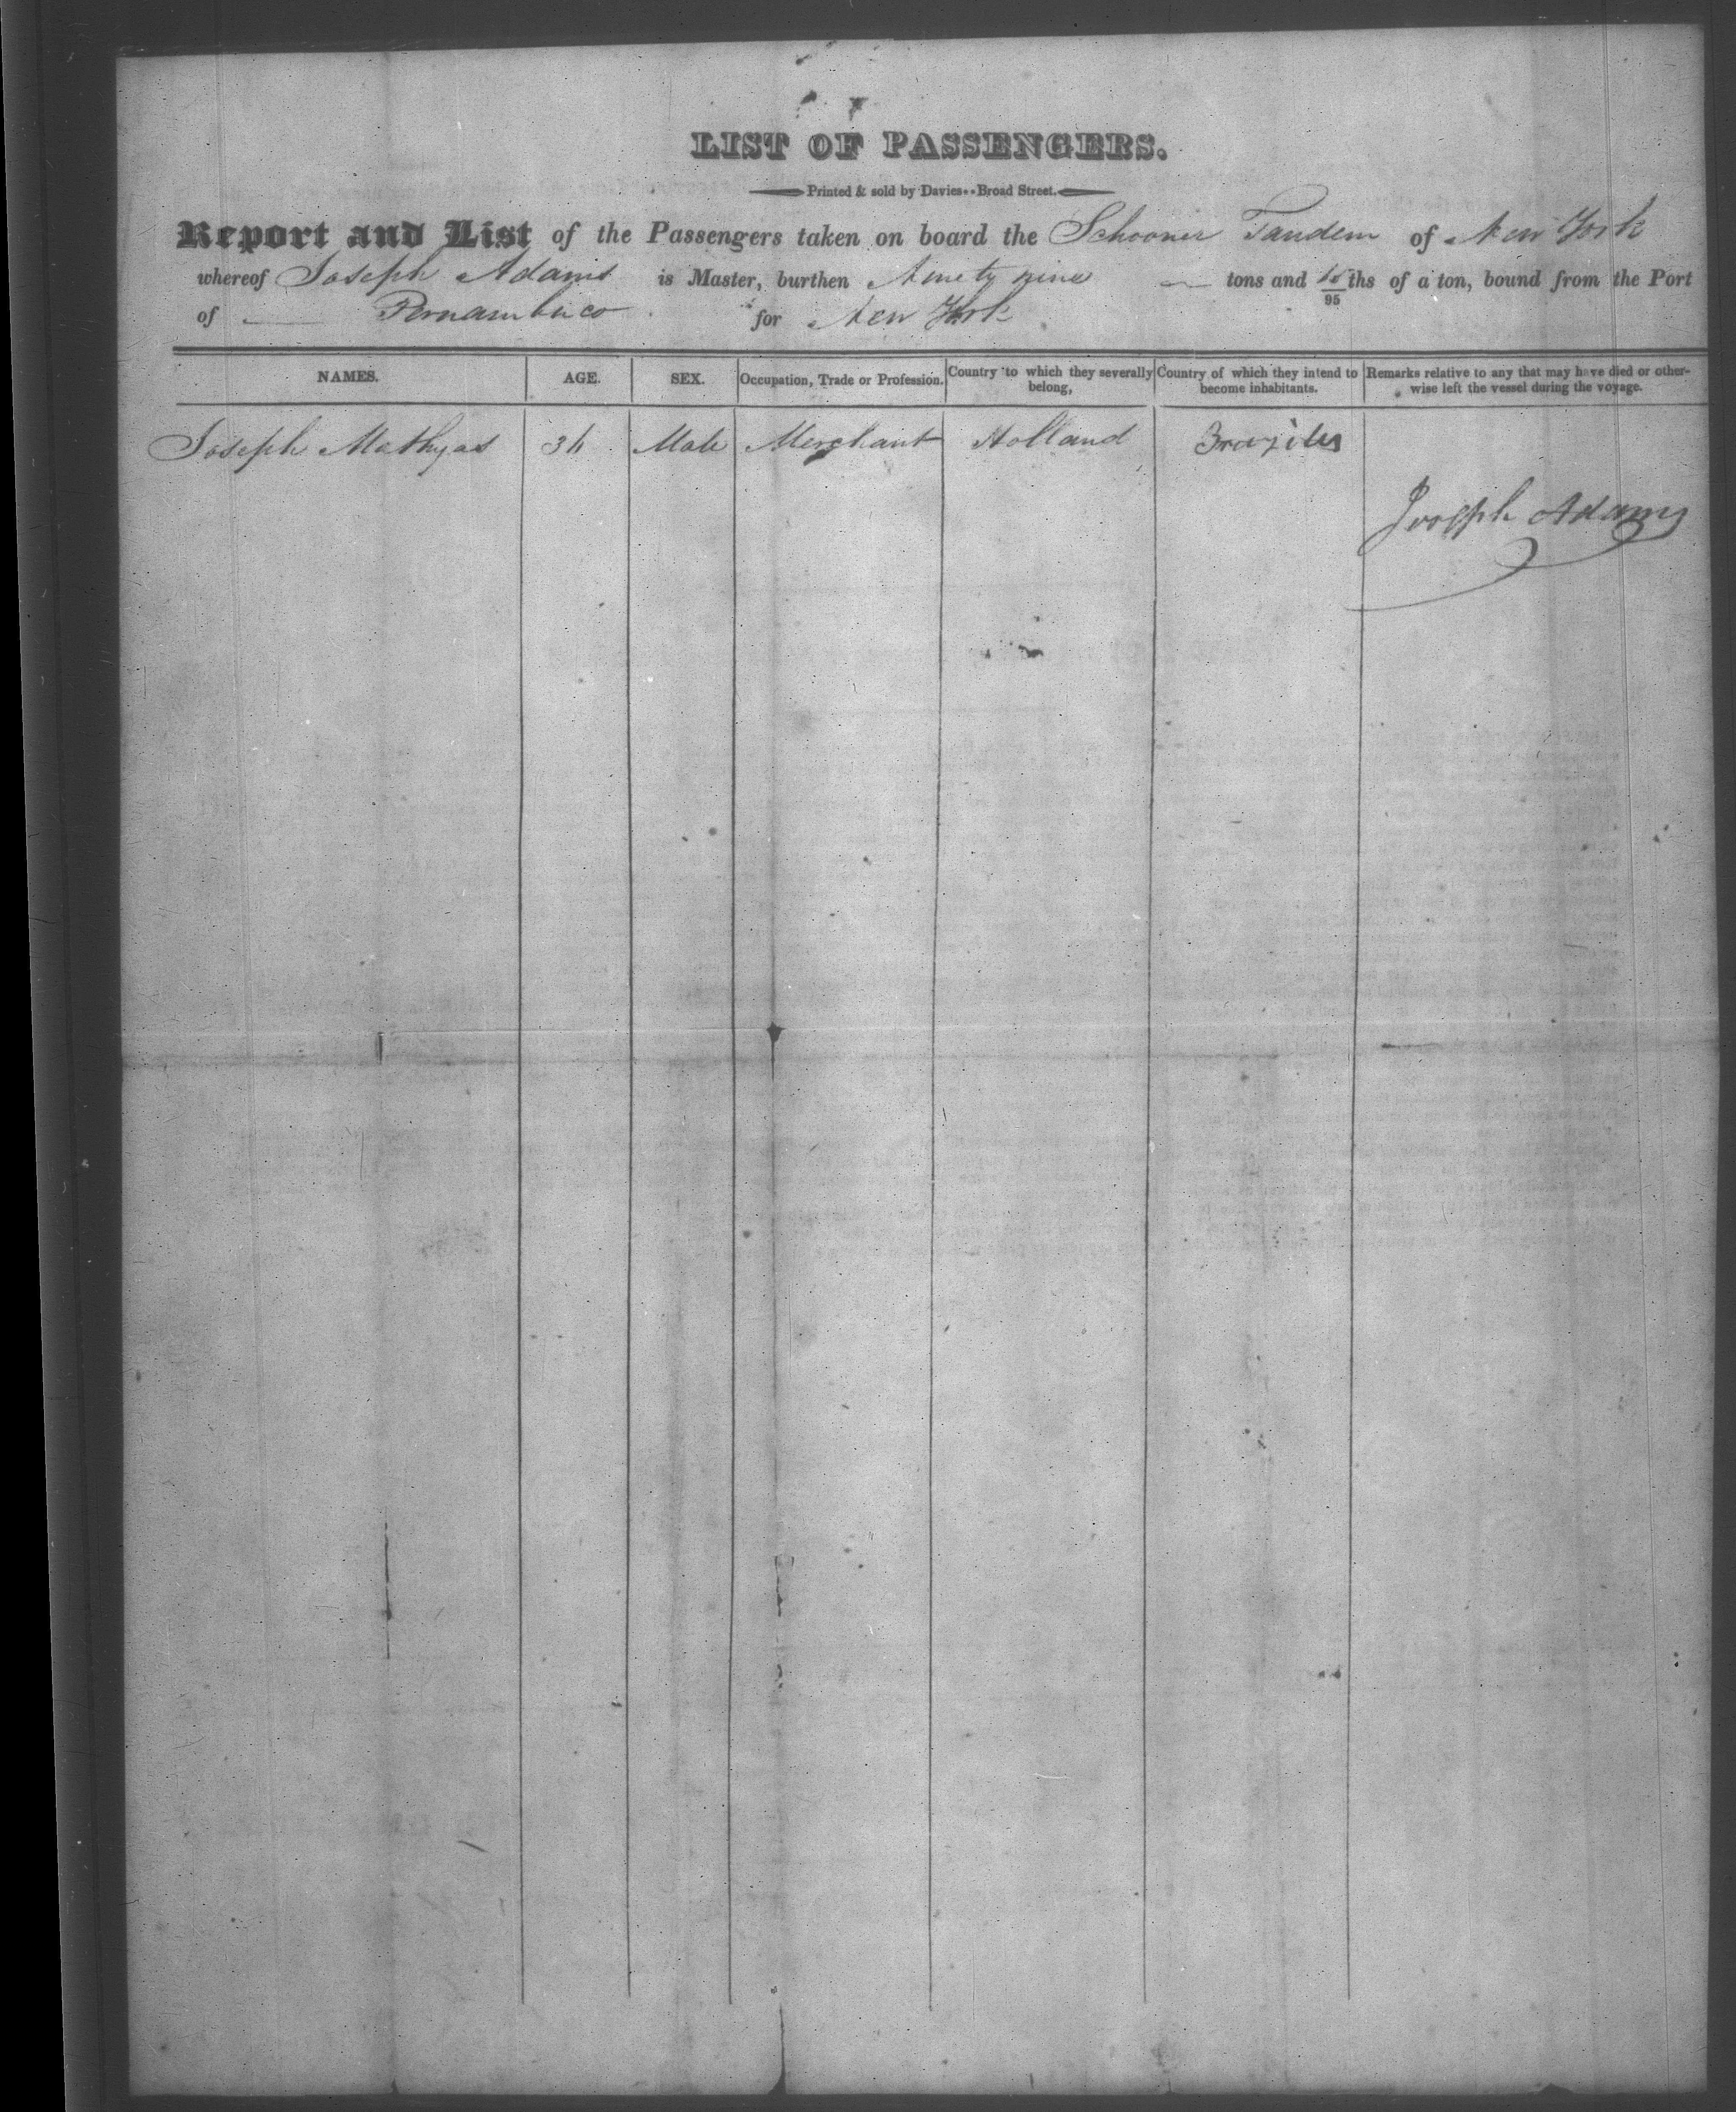 LIST OF PASSENGERS.
Printed & sold by Davies..Broad Street.
Report and List of the Passengers taken on board the Schooner Tandem of New York
whereof Joseph Adams is Master, burthen Ninety nine — tons and /95 ths of a ton, bound from the Port
of — Pernambuco for New York
NAMES. AGE. SEX. Occupation, Trade or Profession. Country to which they severally belong, Country of which they intend to become inhabitants. Remarks relative to any that may have died or other-wise left the vessel during the voyage.
Joseph Mathyas Male Merchant Holland Braziles
Joseph Adams